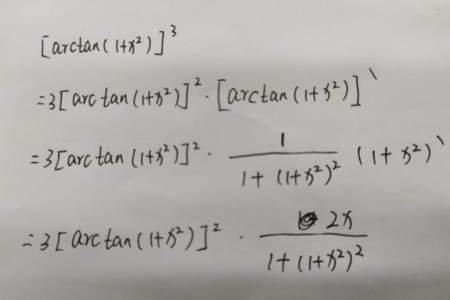 [arctan(1+x²)]³
=3[arctan(1+x²)]²·[arctan(1+x²)]'
=3[arctan(1+x²)]²· 1/(1+(1+x²)²) (1+x²)'
=3[arctan(1+x²)]² · 2x/(1+(1+x²)²)